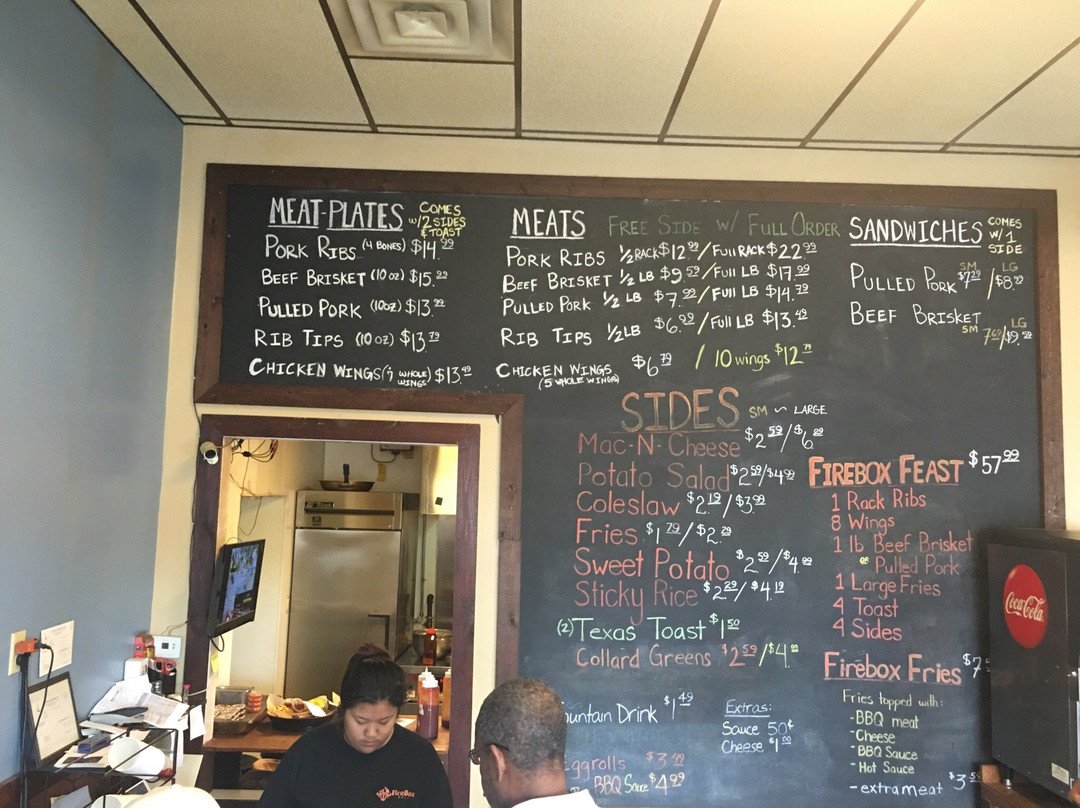 MEAT-PLATES COMES w/2 SIDES & TOAST
PORK RIBS (4 BONES) $14.99
BEEF BRISKET (10 oz) $15.99
PULLED PORK (10oz) $13.99
RIB TIPS (10 oz) $13.79
CHICKEN WINGS (7 WHOLE WINGS) $13.49
MEATS FREE SIDE w/ FULL ORDER
PORK RIBS ½ RACK $12.99 / FULL RACK $22.99
BEEF BRISKET ½ LB $9.59 / FULL LB $17.99
PULLED PORK ½ LB $7.99 / FULL LB $14.79
RIB TIPS ½ LB $6.99 / FULL LB $13.49
CHICKEN WINGS (5 WHOLE WINGS) $6.79 / 10 wings $12.79
SANDWICHES COMES W/1 SIDE
PULLED PORK SM $7.29 / LG
BEEF BRISKET SM / LG
SIDES SM ~ LARGE
Mac-N-Cheese $2.59/$6.29
Potato Salad $2.59/$4.99
Coleslaw $2.19/$3.99
Fries $1.79/$2.29
Sweet Potato $2.59/$4.99
Sticky Rice $2.29/$4.19
(2) Texas Toast $1.50
Collard Greens $2.59/$4.
FIREBOX FEAST $57.99
1 Rack Ribs
8 Wings
1 lb Beef Brisket
or Pulled Pork
1 Large Fries
4 Toast
4 Sides
Firebox Fries $7
Fries topped with:
-BBQ meat
-Cheese
-BBQ Sauce
-Hot Sauce
-extra meat $3
ountain Drink $1.49
ggrolls
BBQ Sauce $4.99
Extras:
Sauce 50¢
Cheese $1.00
Coca-Cola
FireBox